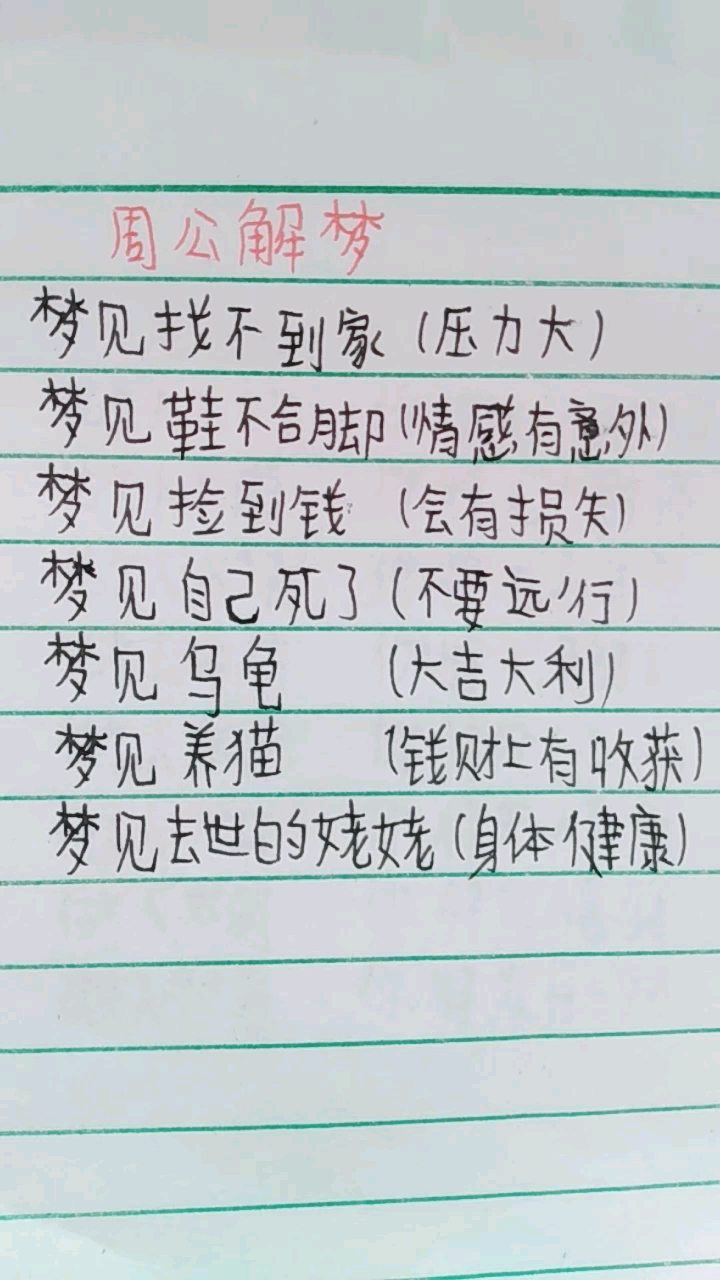 周公解梦
梦见找不到家（压力大）
梦见鞋不合脚（情感有意外）
梦见捡到钱（会有损失）
梦见自己死了（不要远行）
梦见乌龟（大吉大利）
梦见养猫（钱财上有收获）
梦见去世的姥姥（身体健康）